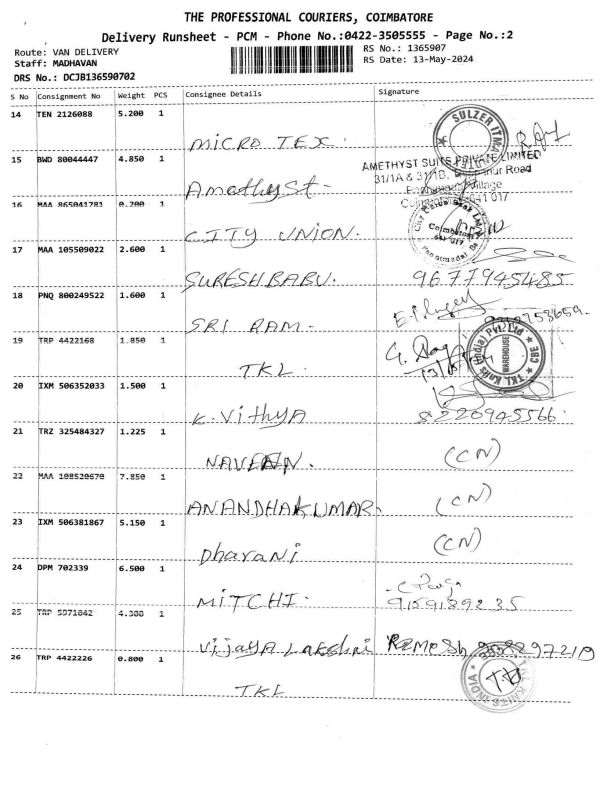 THE PROFESSIONAL COURIERS, COIMBATORE
Delivery Runsheet - PCM - Phone No.:0422-3505555 - Page No.:2
Route: VAN DELIVERY
RS No.: 1365907
Staff: MADHAVAN
RS Date: 13-May-2024
DRS No.: DCJB136590702
S No Consignment No Weight PCS Consignee Details Signature
14 TEN 2126088 5.200 1
MICRO TEX.
SULZER
15 BWD 80044447 4.850 1
AMETHYST SUITS PRIVATE LIMITED
31/1A & 31/1B, Road
Village
641 017
Amethyst-
16 MAA 865041781 0.200 1
CITY UNION.
Coimbatore
641 017
17 MAA 105509022 2.600 1
SURESHBABU. 9677945485
18 PNQ 800249522 1.600 1
SRI RAM-
19 TRP 4422168 1.850 1
TKL.
TKL Knits (India) Pvt Ltd
WAREHOUSE
CBE
20 IXM 506352033 1.500 1
K.VithyA 8220945566.
21 TRZ 325484327 1.225 1
NAVEEN. (CN)
22 MAA 108520670 7.850 1
ANANDHAKUMAR. (CN)
23 IXM 506381867 5.150 1
Dharani (CN)
24 DPM 702339 6.500 1
MITCHI. 9159189235
25 TRP 5971042 4.300 1
VijayA Lakshni RAMESh
26 TRP 4422226 0.800 1
TKL
KNITS INDIA